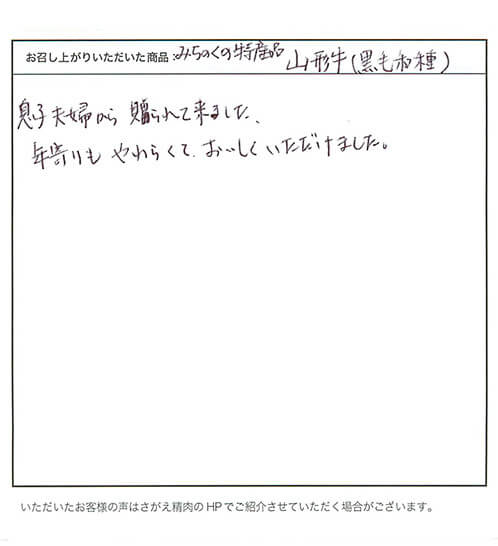 お召し上がりいただいた商品:みちのくの特産品 山形牛(黒毛和種)
息子夫婦から贈られて来ました、
年寄りも やわらくて、おいしくいただけました。
いただいたお客様の声はさがえ精肉のHPでご紹介させていただく場合がございます。